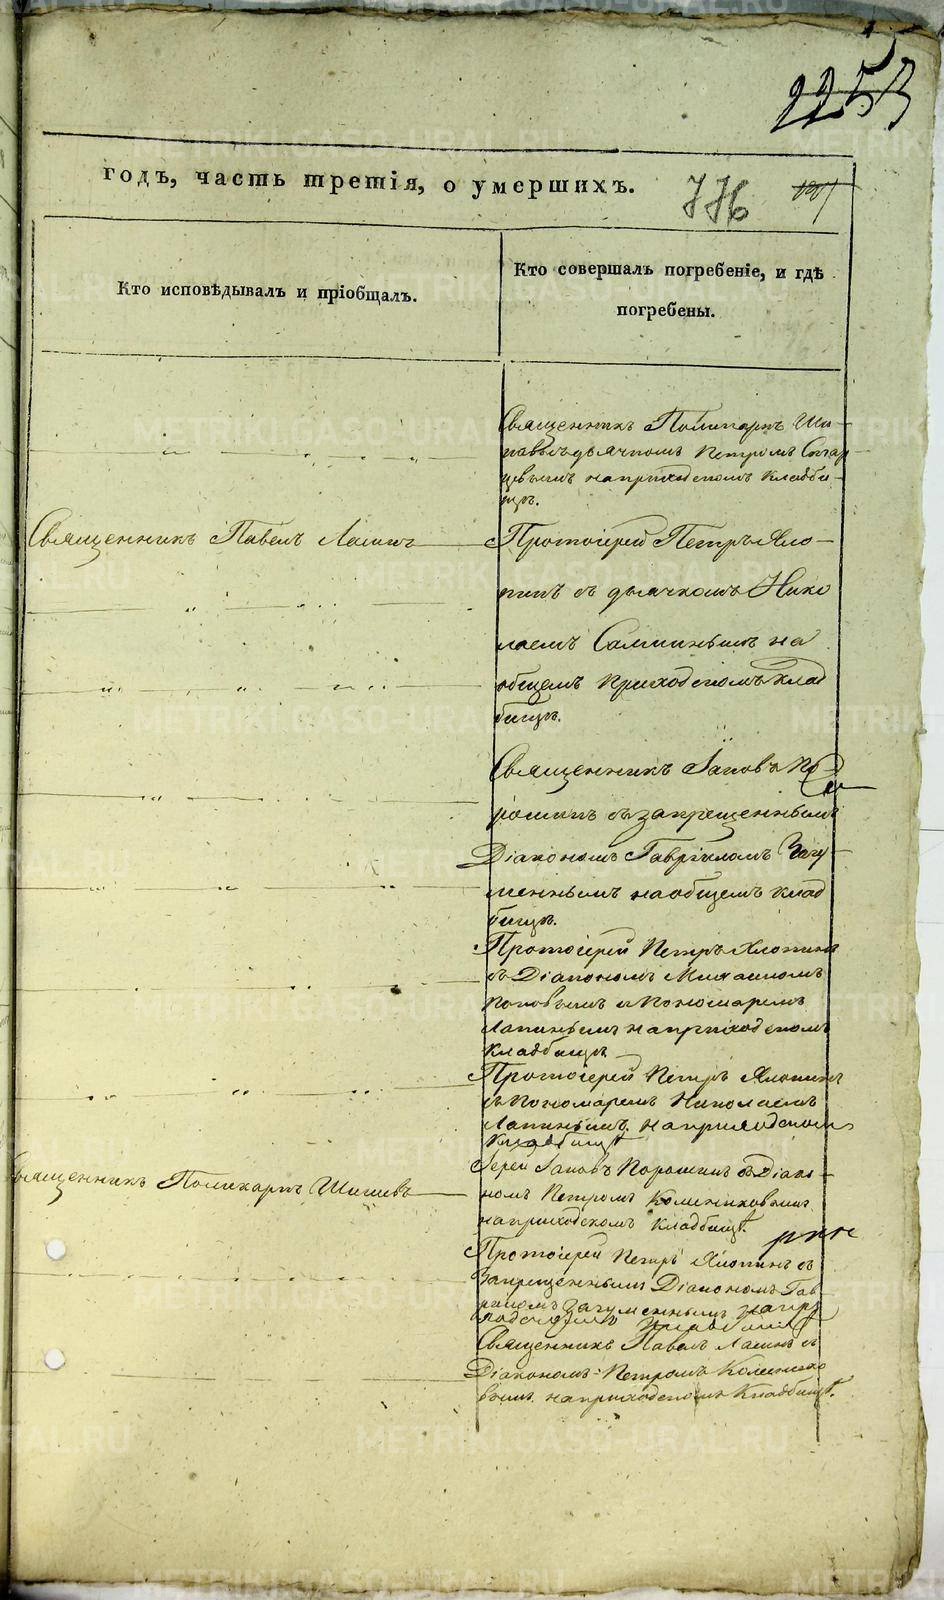 2253
годъ, часть третія, о умершихъ.
776
Кто исповѣдывалъ и пріобщалъ.
Кто совершалъ погребеніе, и гдѣ
погребены.
Священникъ Поликарпъ Ши-
дьячкомъ Петромъ Стар
цевымъ на приходскомъ кладби-
щѣ.
Священникъ Павелъ
Протоіерей Петръ Хло-
пинъ съ дьячкомъ Нико
лаемъ на
общемъ приходскомъ клад
бищѣ.
Священникъ Іаковъ По
рошинъ съ запрещеннымъ
Діакономъ Гавріиломъ Загу-
меннымъ на общемъ клад
бищѣ.
Протоіерей Петръ Хлопинъ
съ Діакономъ Михаиломъ
Поповымъ и Пономаремъ
Лапинымъ на приходскомъ
кладбищѣ
Протоіерей Петръ Хлопинъ
съ Пономаремъ Николаемъ
Лапинымъ на приходскомъ
кладбищѣ
Священникъ Поликарпъ Шишевъ
Іерей Іаковъ Порошинъ съ Діако-
номъ Петромъ
на приходскомъ кладбищѣ
Протоіерей Петръ Хлопинъ съ
Запрещеннымъ Діакономъ Гав-
Загуменнымъ на при
ходскомъ кладбищѣ
Священникъ Павелъ съ
Діакономъ Петромъ
на приходскомъ кладбищѣ.
METRIKI.GASO-URAL.RU